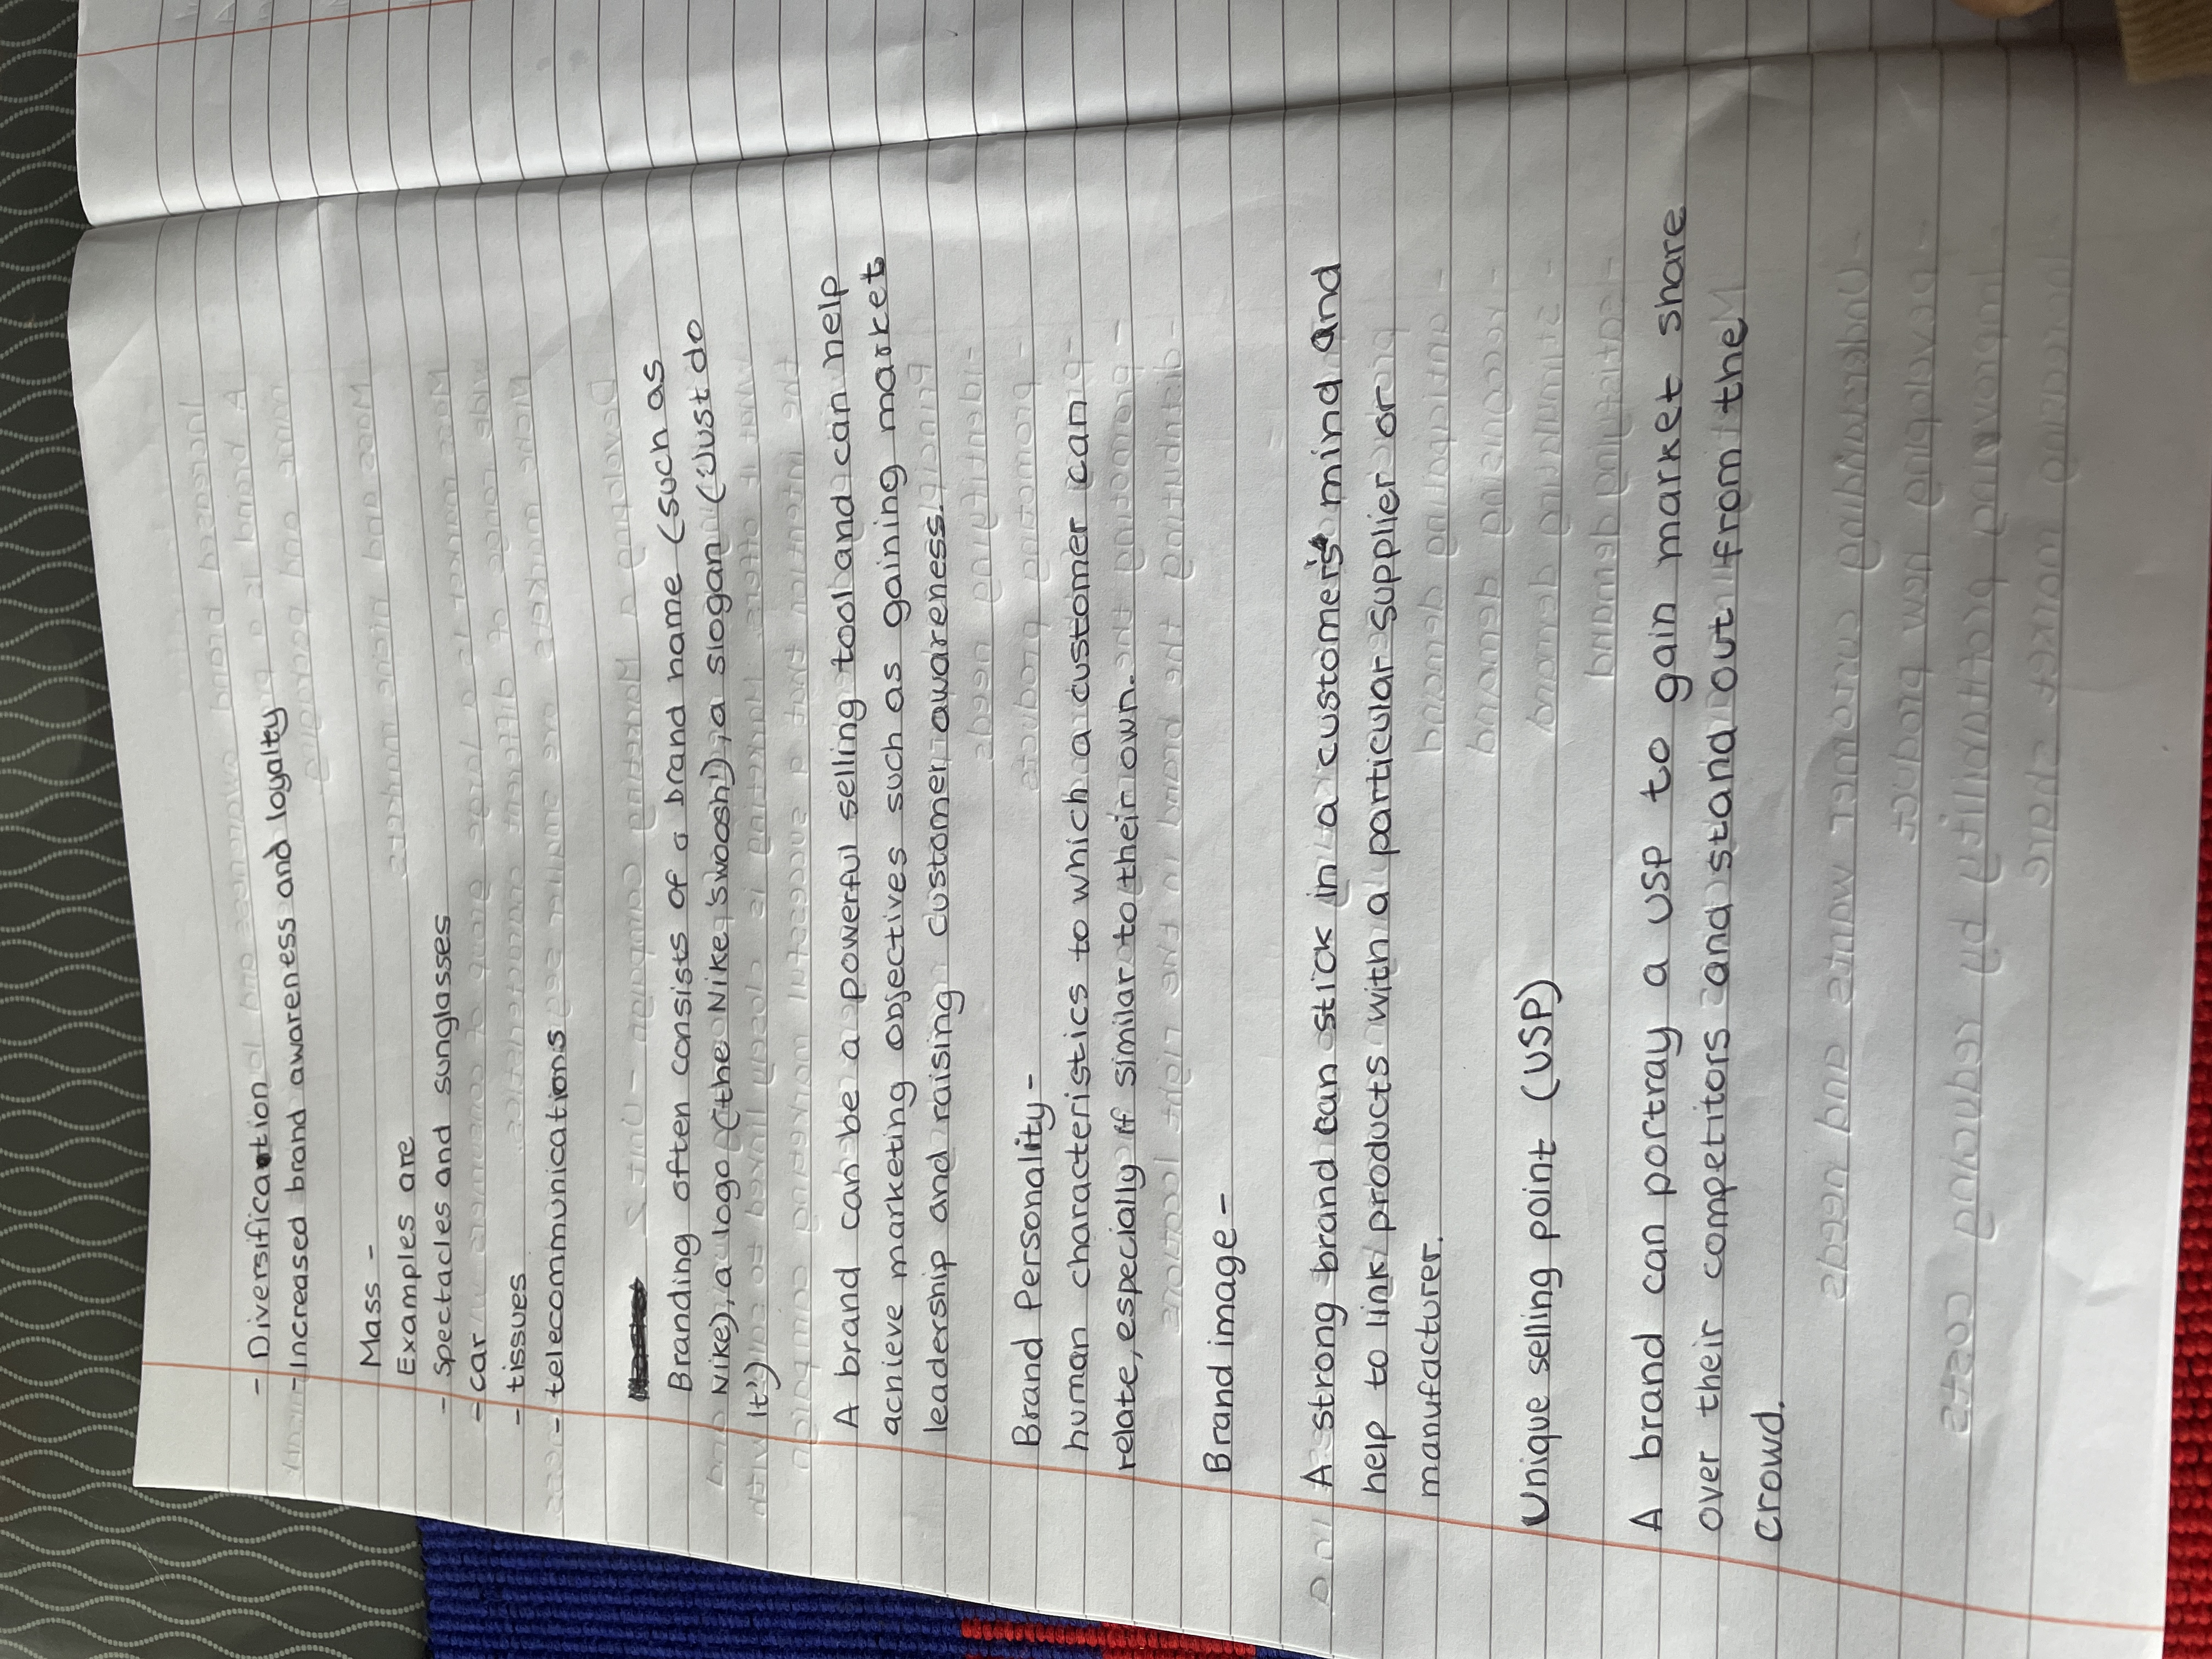 - Diversification
- Increased brand awareness and loyalty
Mass -
Examples are
- Spectacles and sunglasses
- car
- tissues
- telecommunications
Branding often consists of a brand name (such as
Nike), a logo (the Nike 'Swoosh'), a slogan ('Just do
it')
A brand can be a powerful selling tool and can help
achieve marketing objectives such as gaining market
leadership and raising customer awareness.
Brand Personality -
human characteristics to which a customer can
relate, especially if similar to their own.
Brand image -
A strong brand can stick in a customer's mind and
help to link products with a particular supplier or
manufacturer.
Unique selling point (USP)
A brand can portray a USP to gain market share
over their competitors and stand out from the
crowd.